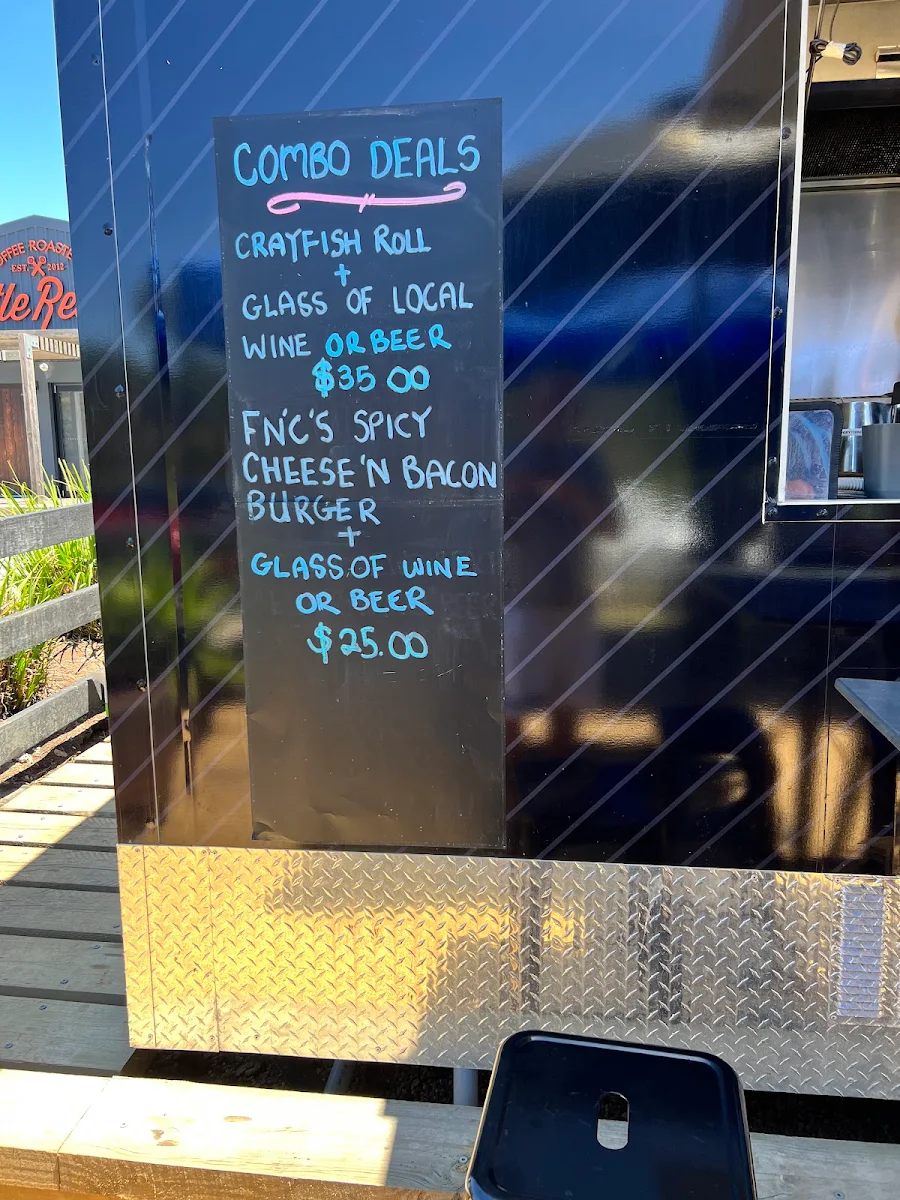 COFFEE ROASTE
EST. 2012
COMBO DEALS
CRAYFISH ROLL
+
GLASS OF LOCAL
WINE OR BEER
$35 00
FN'C'S SPICY
CHEESE'N BACON
BURGER
+
GLASS OF WINE
OR BEER
$25.00